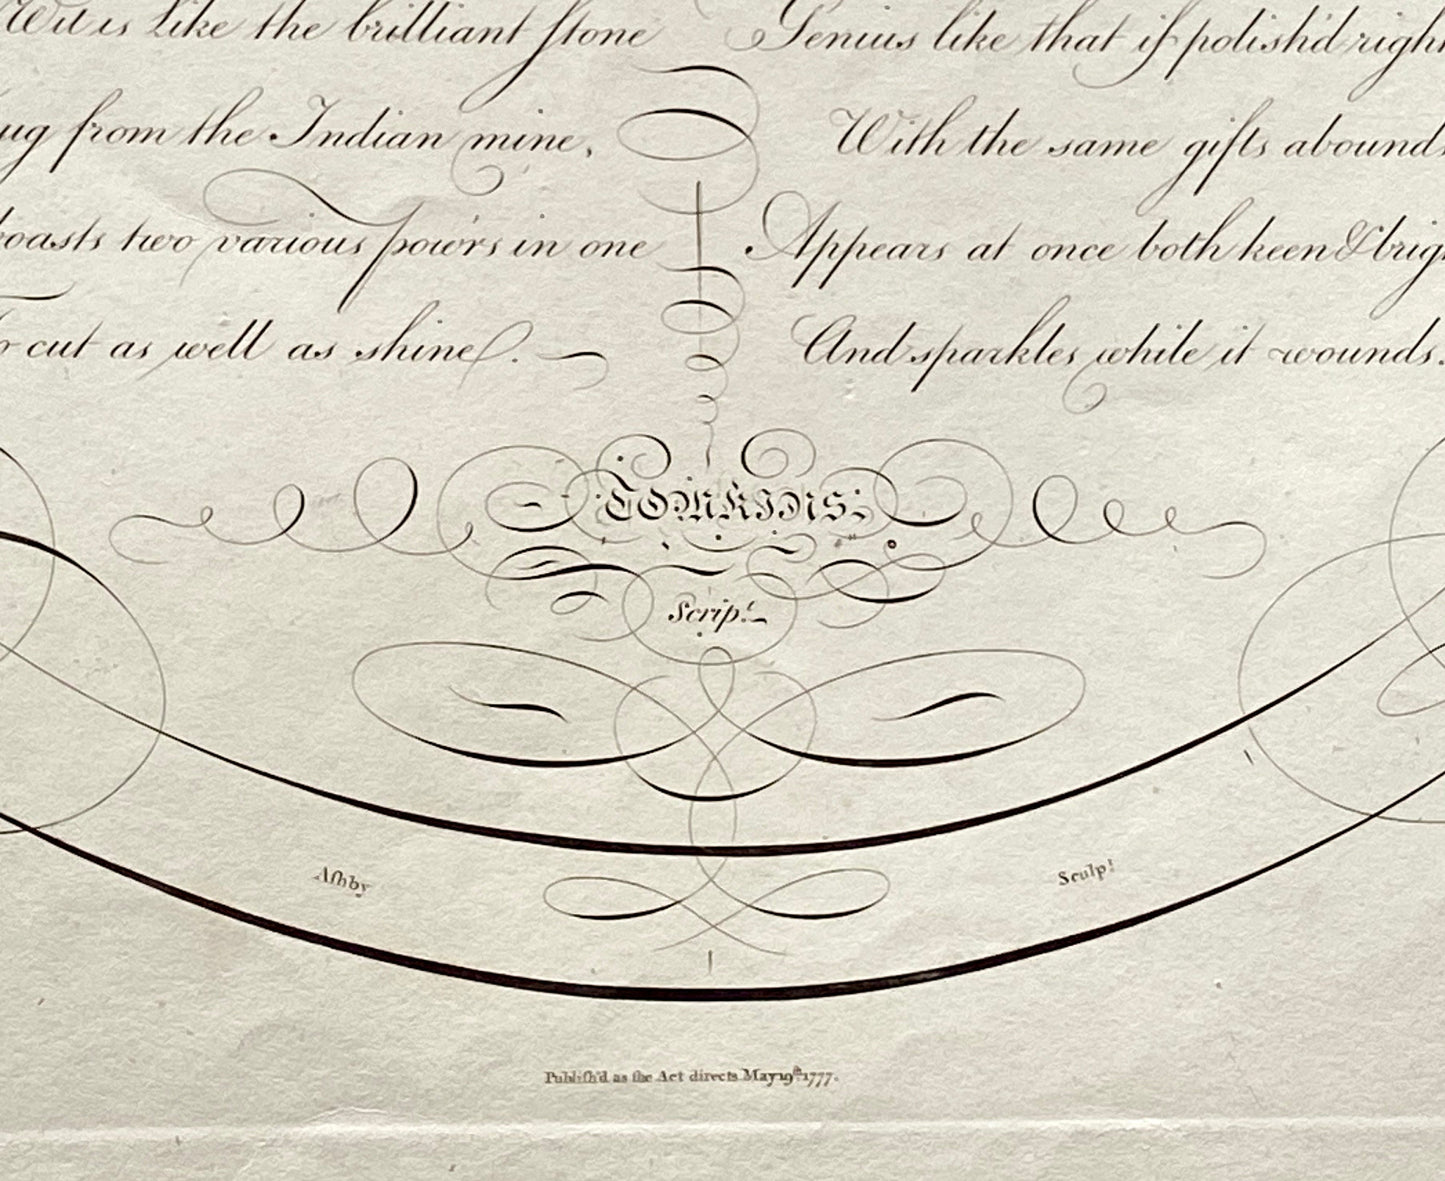 Wit is like the brilliant stone
ug from the Indian mine,
boasts two various pow'rs in one
To cut as well as shine.
Genius like that if polish'd righ
With the same gifts abounds
Appears at once both keen & brig
And sparkles while it wounds.
TOMKINS.
Scrip.t
Aſhby
Sculp.t
Publiſh'd as the Act directs May 19th. 1777.